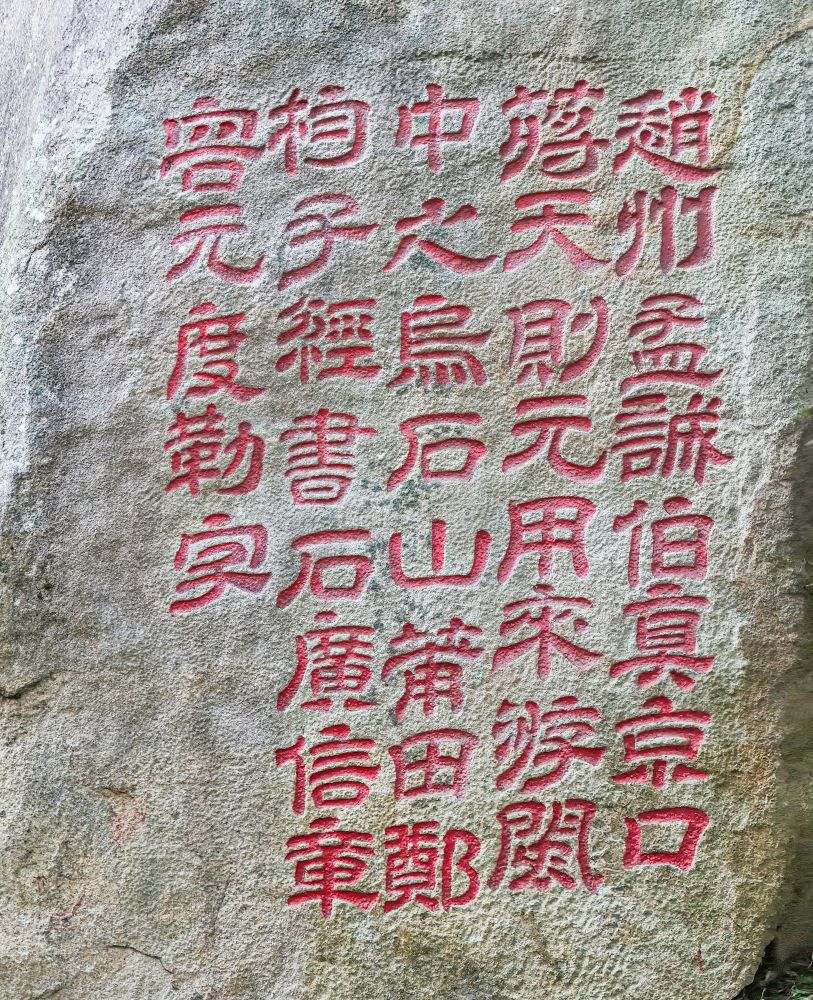 趙州孟誠伯真京口
蔣天則元用來游閩
中之烏石山莆田鄭
杓子經書石廣信章
容元度勒字